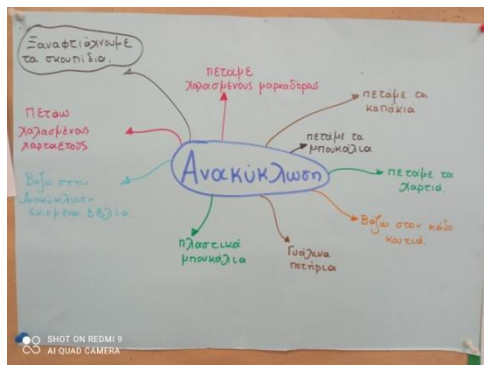 Ξαναφτιάχνουμε
τα σκουπίδια.
πετάμε
χαλασμένους μαρκαδόρους
πετάμε τα
καπάκια
Πετάω
χαλασμένους
χαρταετούς
πετάμε τα
μπουκάλια
Ανακύκλωση
πετάμε τα
χαρτιά.
Βάζω στην
Ανακύκλωση
σκισμένα βιβλία.
Βάζω στον κάδο
κουτιά.
Πλαστικά
μπουκάλια
Γυάλινα
ποτήρια
SHOT ON REDMI 9
AI QUAD CAMERA